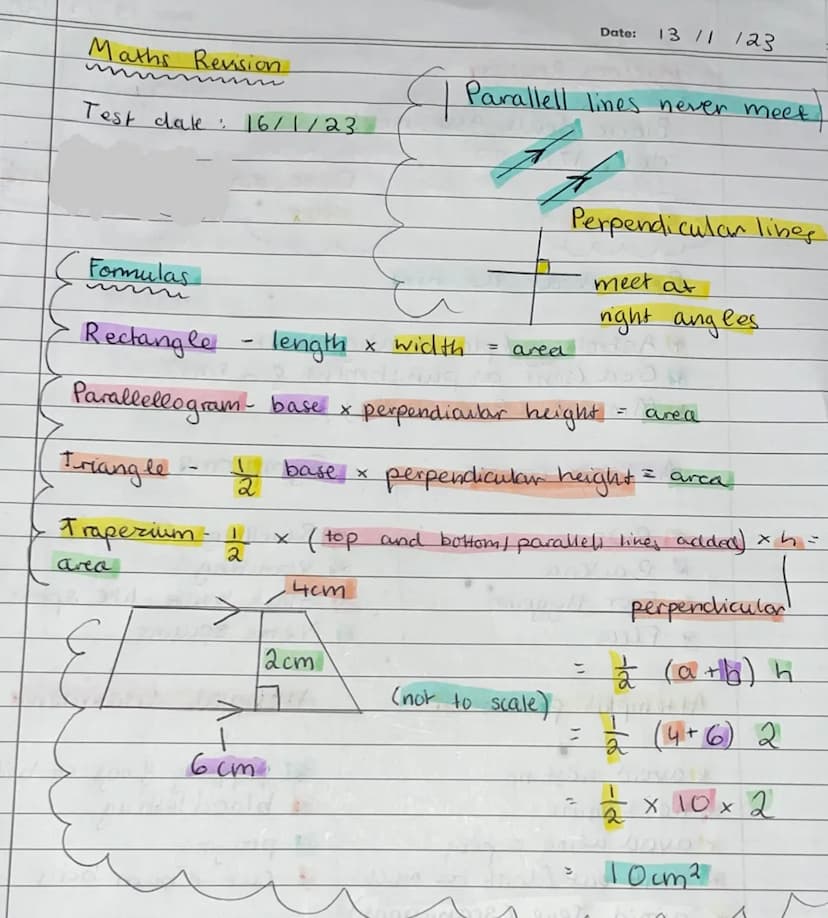 Date: 13 /1 /23
Maths Revision
Test date: 16/1/23
Parallell lines never meet
Perpendicular lines
meet at
right angles
Formulas
Rectangle - length × width = area
Parallellogram - base × perpendicular height = area
Triangle - 1/2 base × perpendicular height = area
Trapezium - 1/2 × (top and bottom/parallell lines added) × h =
area
perpendicular
4cm
2cm
6cm
(not to scale)
= 1/2 (a+b) h
= 1/2 (4+6) 2
= 1/2 × 10 × 2
= 10cm²